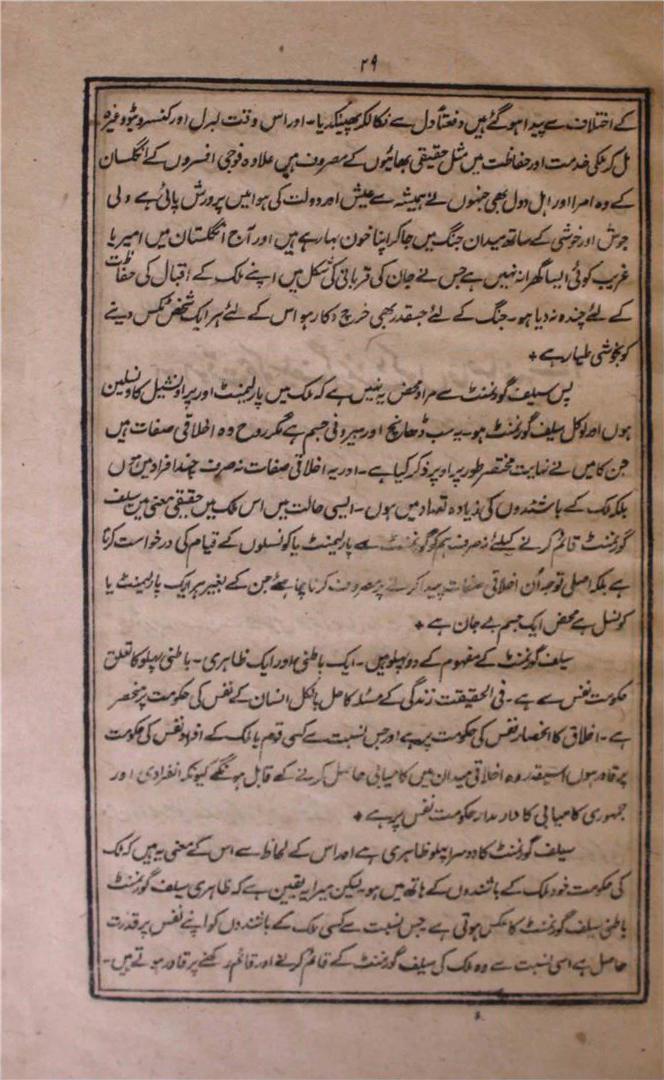 ۲۹
کے اختلاف سے پیدا ہوگئے ہیں دفعتاً دل سے نکالکر پھینکدیا۔ اور اس وقت لبرل اور کنسرویٹو وغیرہ
مل کر ملکی خدمت اور حفاظت میں مثل حقیقی بھائیوں کے مصروف ہیں علاوہ فوجی افسروں کے انگلستان
کے وہ امرا اور اہل دول بھی جنہوں نے ہمیشہ سے عیش اور دولت کی ہوا میں پرورش پائی ہے دلی
جوش اور خوشی کے ساتھ میدان جنگ میں جاکر اپنا خون بہا رہے ہیں اور آج انگلستان میں امیر یا
غریب کوئی ایسا گھرانہ نہیں ہے جس نے جان کی قربانی کی شکل میں اپنے ملک کے اقبال کی حفاظت
کے لئے چندہ نہ دیا ہو۔ جنگ کے لئے جسقدر بھی خرچ درکار ہو اس کے لئے ہر ایک شخص ٹکس دینے
کو بخوشی طیار ہے +
پس سیلف گورنمنٹ سے مراد محض یہ نہیں ہے کہ ملک میں پارلیمنٹ اور پراونشیل کاونسلین
ہوں اور لوکل سیلف گورنمنٹ ہو۔ یہ سب ڈھانچ اور بیرونی جسم ہے مگر روح وہ اخلاقی صفات ہیں
جن کا میں نے نہایت مختصر طور پر اوپر ذکر کیا ہے۔ اور یہ اخلاقی صفات نہ صرف چند افراد میں ہوں
بلکہ ملک کے باشندوں کی زیادہ تعداد میں ہوں۔ ایسی حالت میں اس ملک میں حقیقی معنی میں سیلف
گورنمنٹ قائم کرنے کیلئے نہ صرف ہم کو گورنمنٹ سے پارلیمنٹ یا کونسلوں کے قیام کی درخواست کرنا
ہے بلکہ اصلی توجہ اُن اخلاقی صفات پیدا کرنے پر مصروف کرنا چاہئے جن کے بغیر ہر ایک پارلیمنٹ یا
کونسل ہے محض ایک جسم بے جان ہے +
سیلف گورنمنٹ کے مفہوم کے دو پہلو ہیں۔ ایک باطنی اور ایک ظاہری۔ باطنی پہلو کا تعلق
حکومت نفس سے ہے۔ فی الحقیقت زندگی کے مسئلہ کا حل بالکل انسان کے نفس کی حکومت پر منحصر
ہے۔ اخلاق کا انحصار نفس کی حکومت پر ہے اور جس نسبت سے کسی قوم یا ملک کے افراد نفس کی حکومت
پر قادر ہوں اسیقدر وہ اخلاقی میدان میں کامیابی حاصل کرنے کے قابل ہونگے کیونکہ انفرادی اور
جمہوری کامیابی کا دار مدار حکومت نفس پر ہے +
سیلف گورنمنٹ کا دوسرا پہلو ظاہری ہے اور اس کے لحاظ سے اس کے معنی یہ ہیں کہ ملک
کی حکومت خود ملک کے باشندوں کے ہاتھ میں ہو۔ لیکن میرا یہ یقین ہے کہ ظاہری سیلف گورنمنٹ
باطنی سیلف گورنمنٹ کا عکس ہوتی ہے۔ جس نسبت سے کسی ملک کے باشندوں کو اپنے نفس پر قدرت
حاصل ہے اسی نسبت سے وہ ملک کی سیلف گورنمنٹ کے قائم کرنے اور قائم رکھنے پر قادر ہوتے ہیں۔